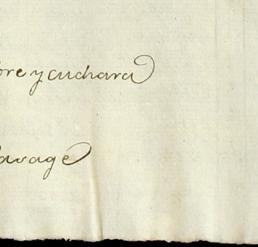 bre y cuchara
avage